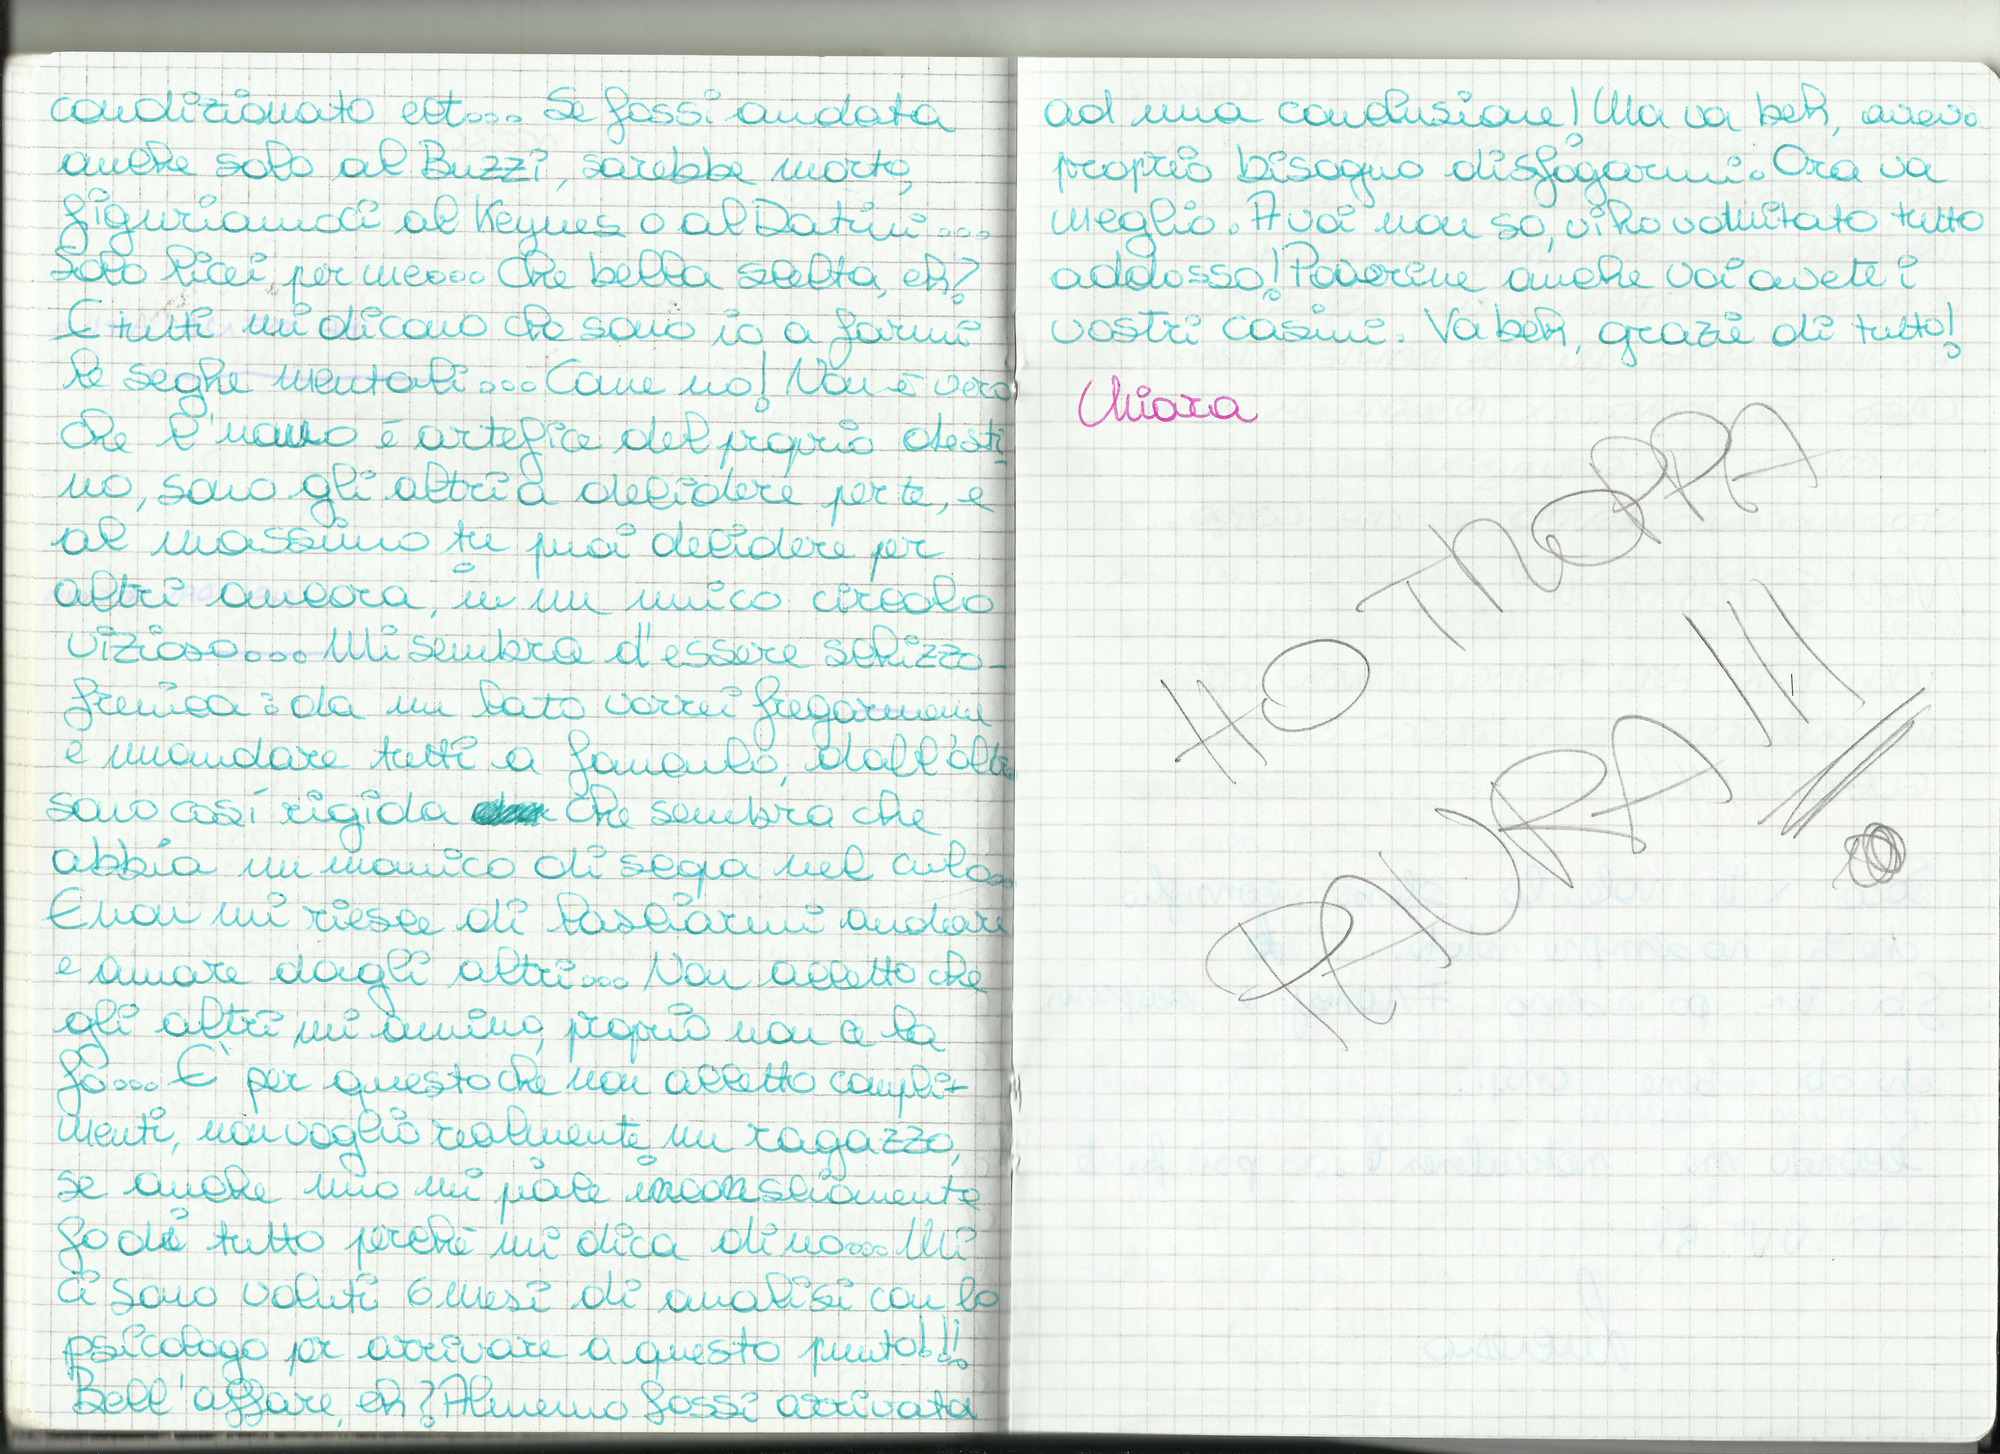 condizionato ect... Se fossi andata
anche solo al Buzzi, sarebbe morto,
figuriamoci al Keynes o al Datini...
Solo licei per me... Che bella scelta, eh?
E tutti mi dicono che sono io a farmi
le seghe mentali... Come no! Non è vero
che l'uomo è artefice del proprio desti-
no, sono gli altri a decidere per te, e
al massimo tu puoi decidere per
altri ancora, in un unico circolo
vizioso... Mi sembra d'essere schizzo-
frenica: da un lato vorrei fregarmene
e mandare tutti a fanculo, dall'altro
sono così rigida che sembra che
abbia un manico di sega nel culo...
E non mi riesce di lasciarmi andare
e amare dagli altri... Non accetto che
gli altri mi amino, proprio non ce la
fo... E' per questo che non accetto compli-
menti, non voglio realmente un ragazzo,
se anche uno mi piace inconsciamente
fo di tutto perché mi dica di no... Mi
ci sono voluti 6 mesi di analisi con lo
psicologo per arrivare a questo punto!!!
Bell'affare, eh? Almeno fossi arrivata
ad una conclusione! Ma va beh, avevo
proprio bisogno disfogarmi. Ora va
meglio. A voi non so, vi ho vomitato tutto
addosso! Poverine anche voi avete i
vostri casini. Va beh, grazie di tutto!
Chiara
HO TROPPA
PAURA!!!